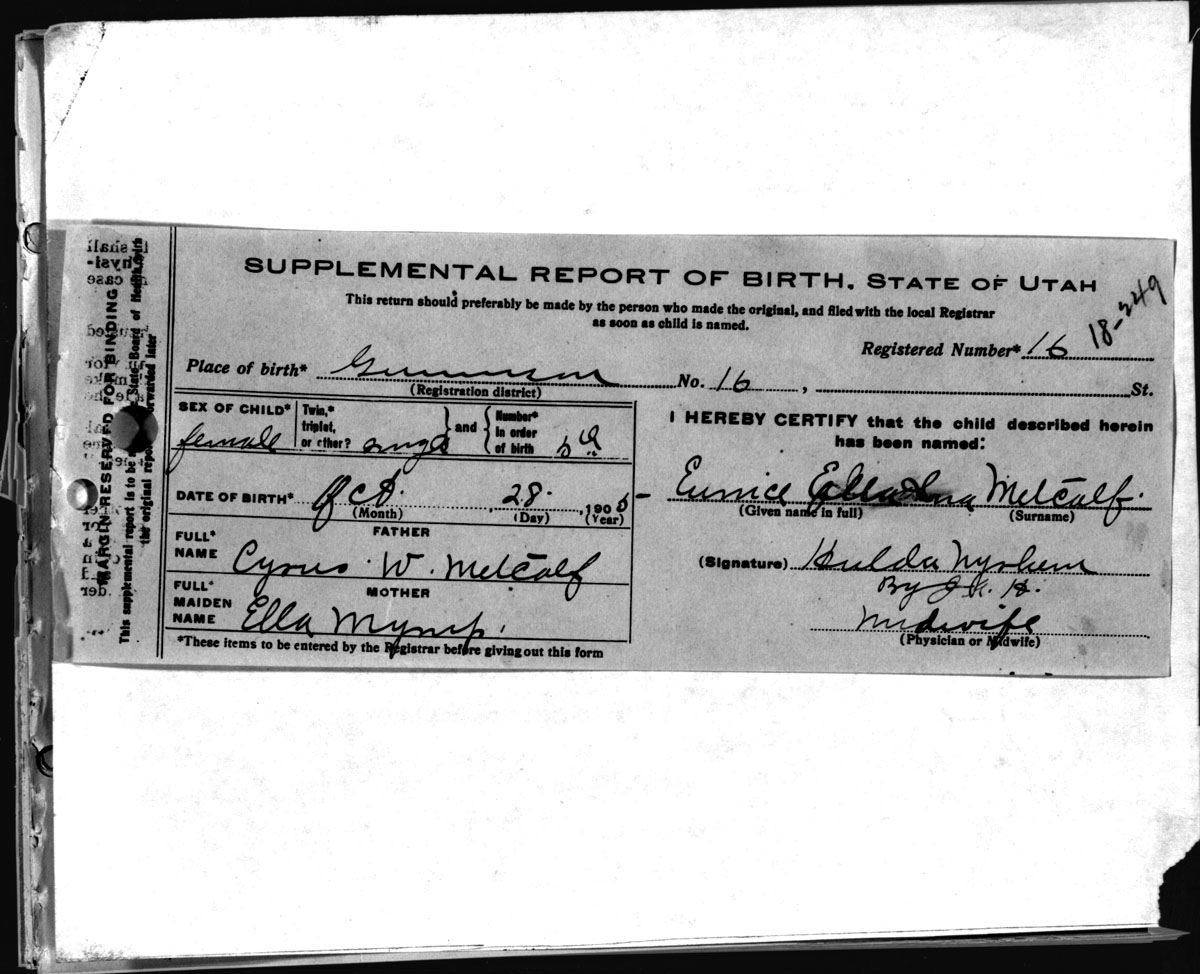 SUPPLEMENTAL REPORT OF BIRTH. STATE OF UTAH
This return should preferably be made by the person who made the original, and filed with the local Registrar
as soon as child is named.
18-249
Registered Number* 16
Place of birth* Gunnison No. 16 , St.
(Registration district)
SEX OF CHILD* female Twin,* triplet, or other? and Number* in order of birth
DATE OF BIRTH* Oct. 28. , 1905
(Month) (Day) (Year)
FATHER
FULL* NAME Cyrus W. Metcalf
MOTHER
FULL* MAIDEN NAME Ella
*These items to be entered by the Registrar before giving out this form
I HEREBY CERTIFY that the child described herein
has been named:
Eunice Metcalf.
(Given name in full) (Surname)
(Signature) Hulda
By
Midwife
(Physician or Midwife)
MARGIN RESERVED FOR BINDING
This supplemental report is to be State Board of Health
the original report forwarded later